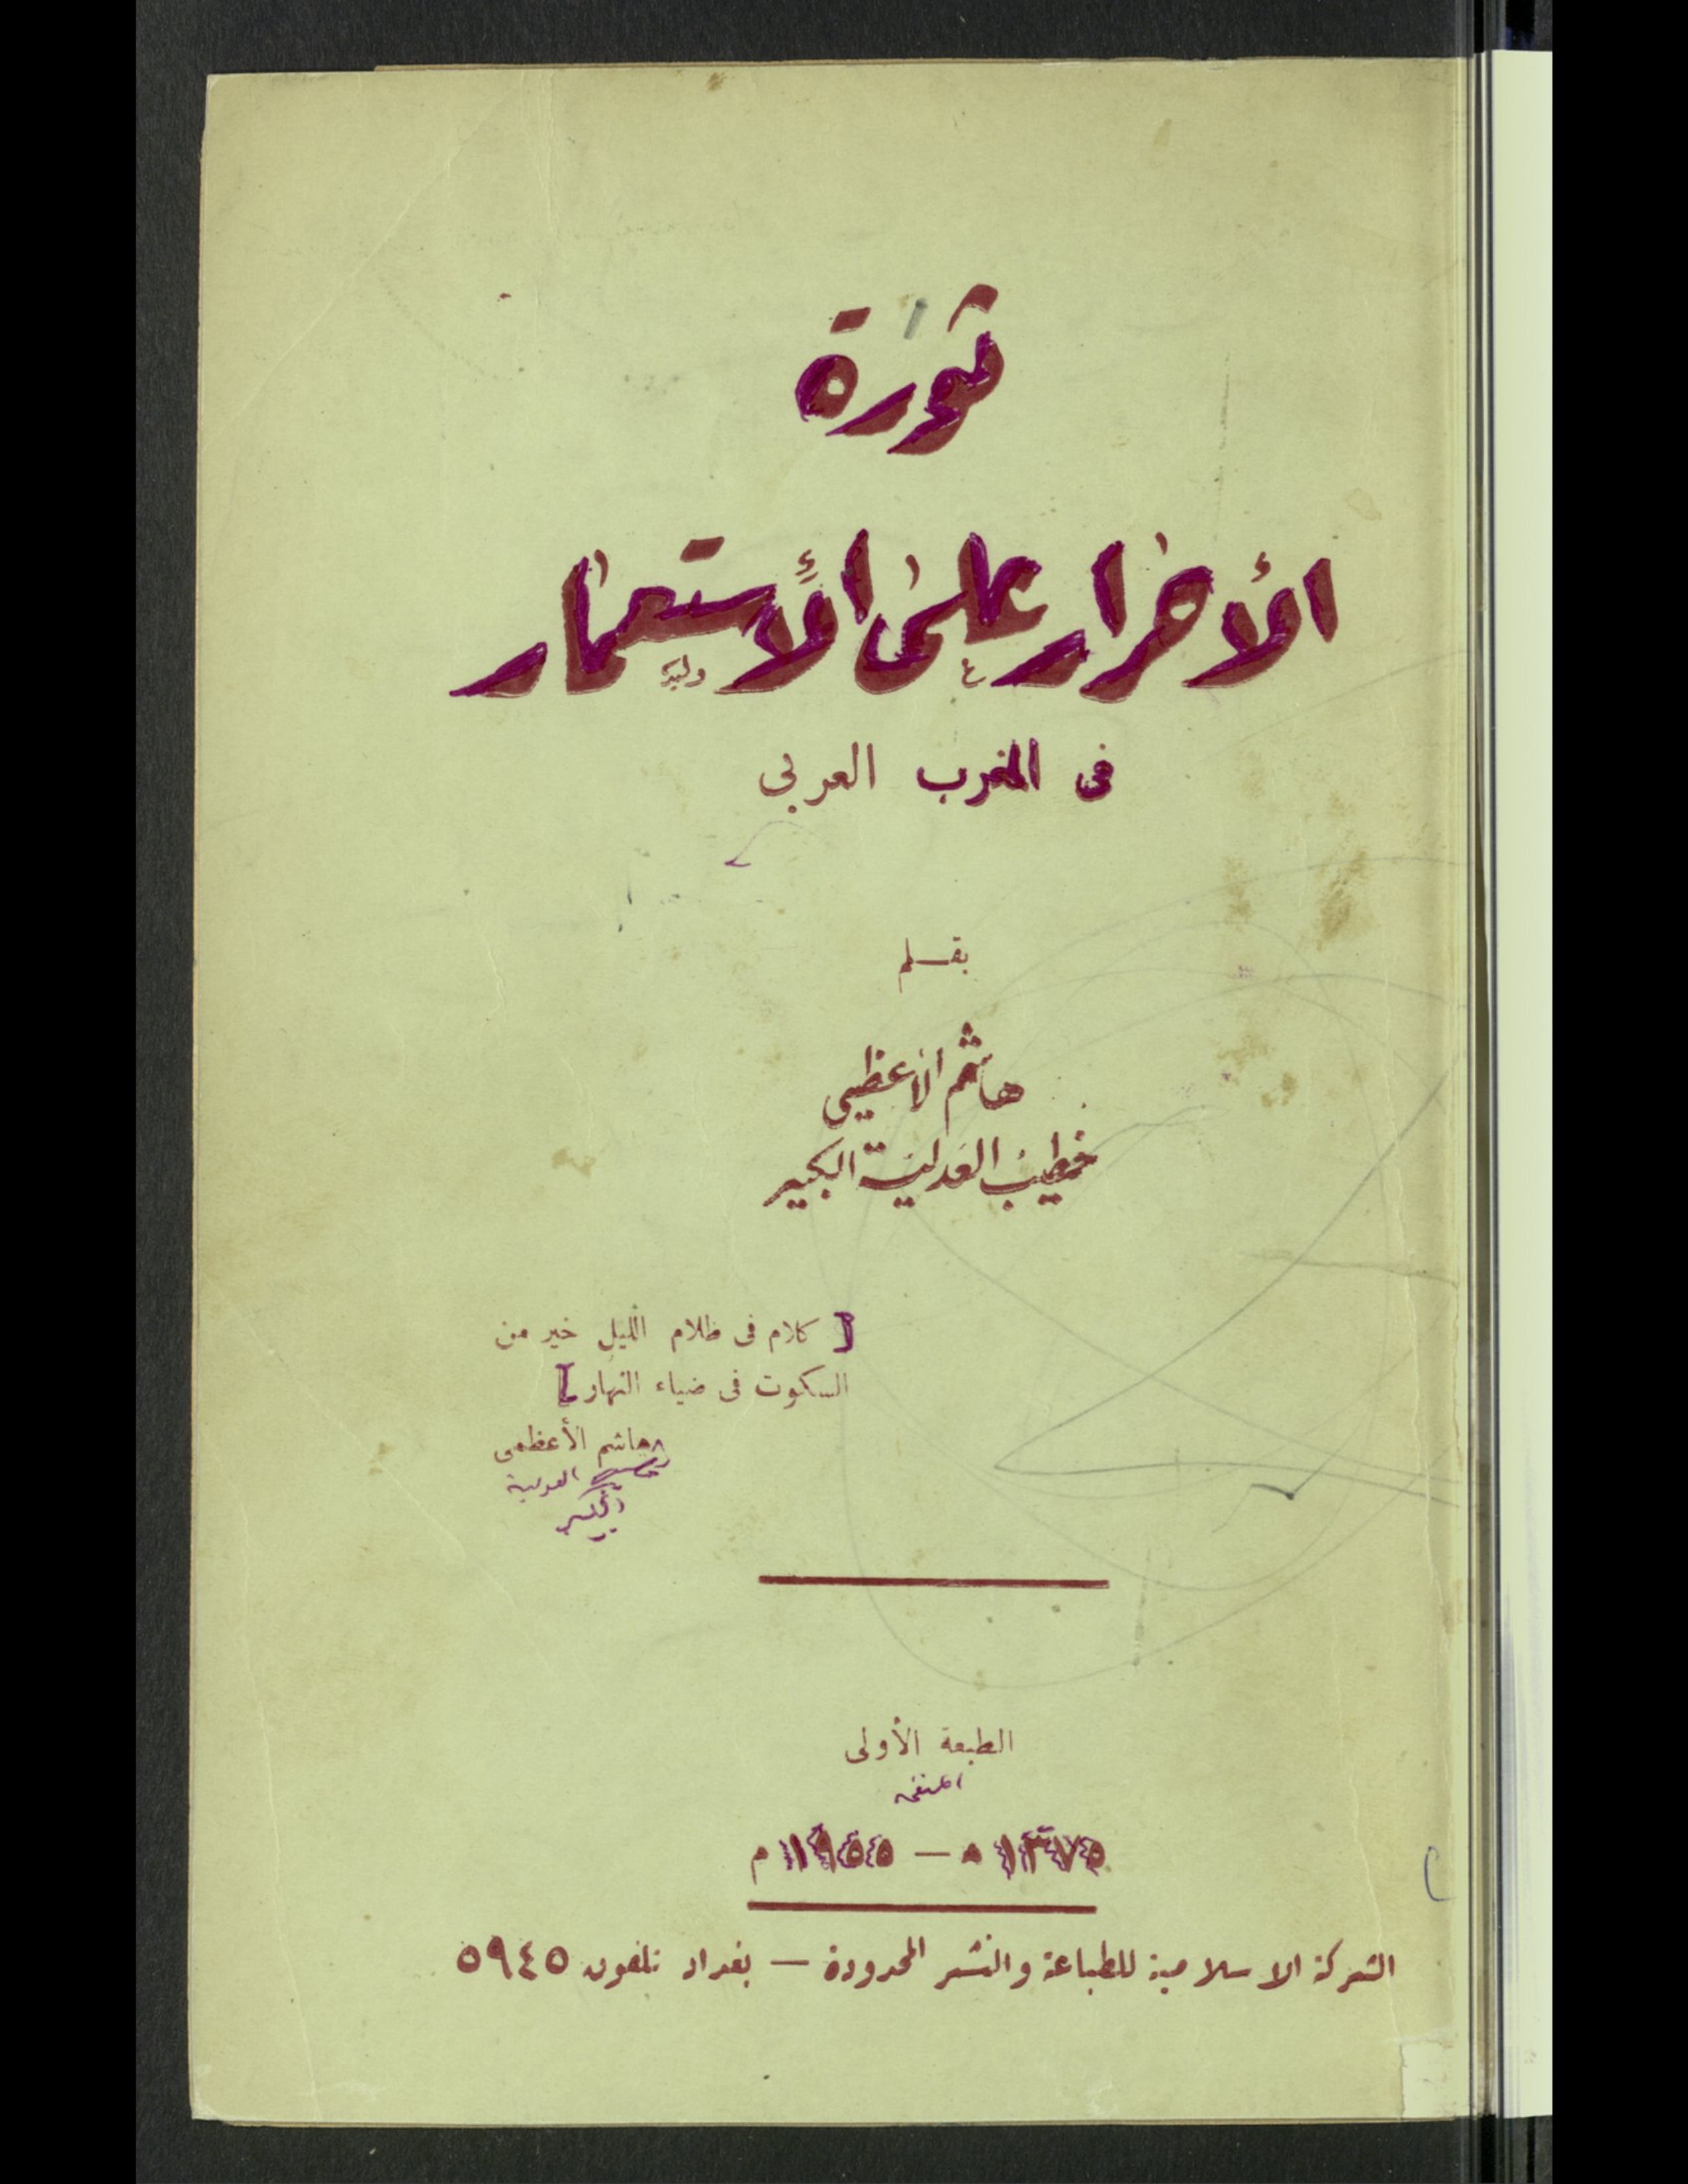 ثورة
الأحرار على الأستعمار
فى المغرب العربي
بقلم
هاشم الأعظمي
خطيب العدلية الكبير
[ كلام فى ظلام الليل خير من
السكوت فى ضياء النهار ]
هاشم الأعظمى
العدلية
الطبعة الأولى
١٣٧٥ ه — ١٩٥٥ م
الشركة الاسلامية للطباعة والنشر المحدودة — بغداد تلفون ٥٩٤٥